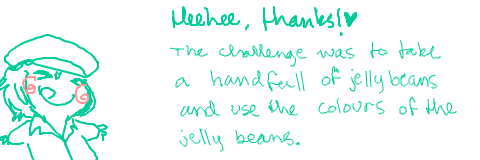 Heehee, thanks!♥
The challenge was to take
a handfull of jellybeans
and use the colours of the
jelly beans.